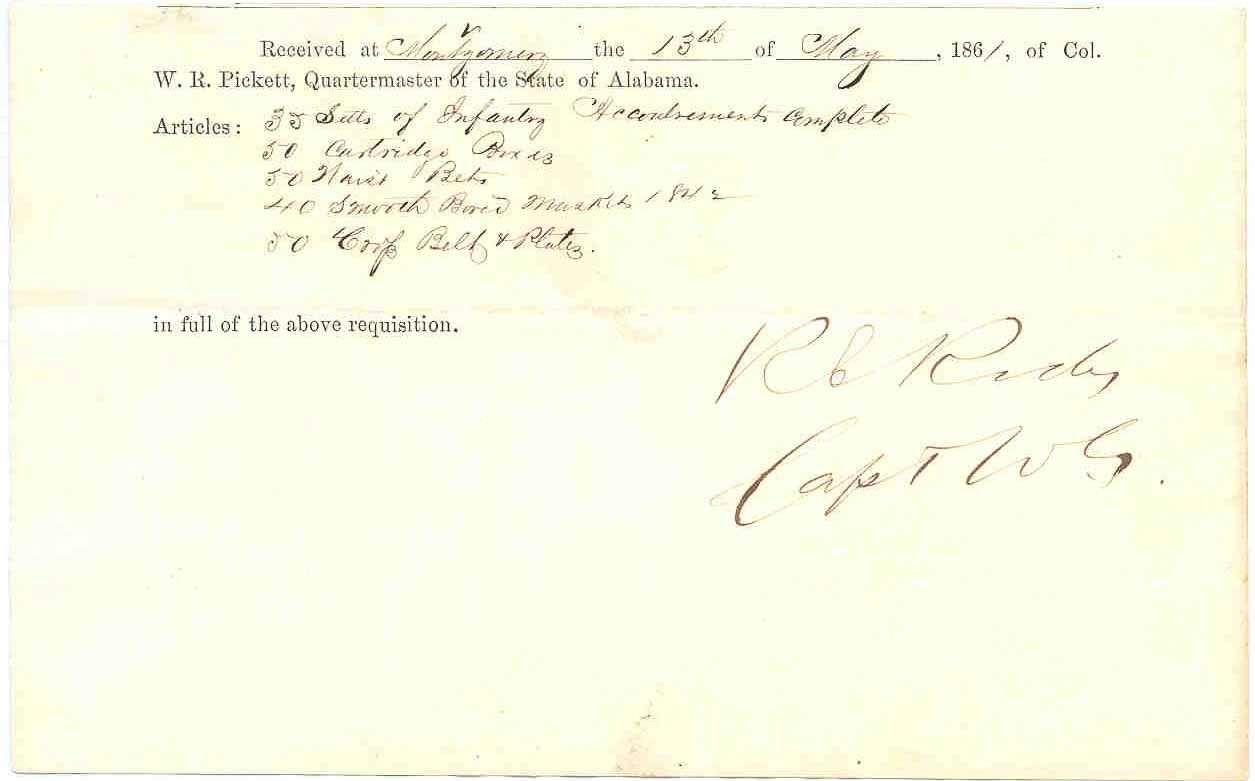 Received at Montgomery the 13th of May, 1861, of Col.
W. R. Pickett, Quartermaster of the State of Alabama.
Articles: 35 Setts of Infantry Accoutrements Complete
50 Cartridge Boxes
50 Waist Belts
40 Smooth Bored Muskets 1842
50 Belts & Plates.
in full of the above requisition.
R E Rodes
Capt W G.